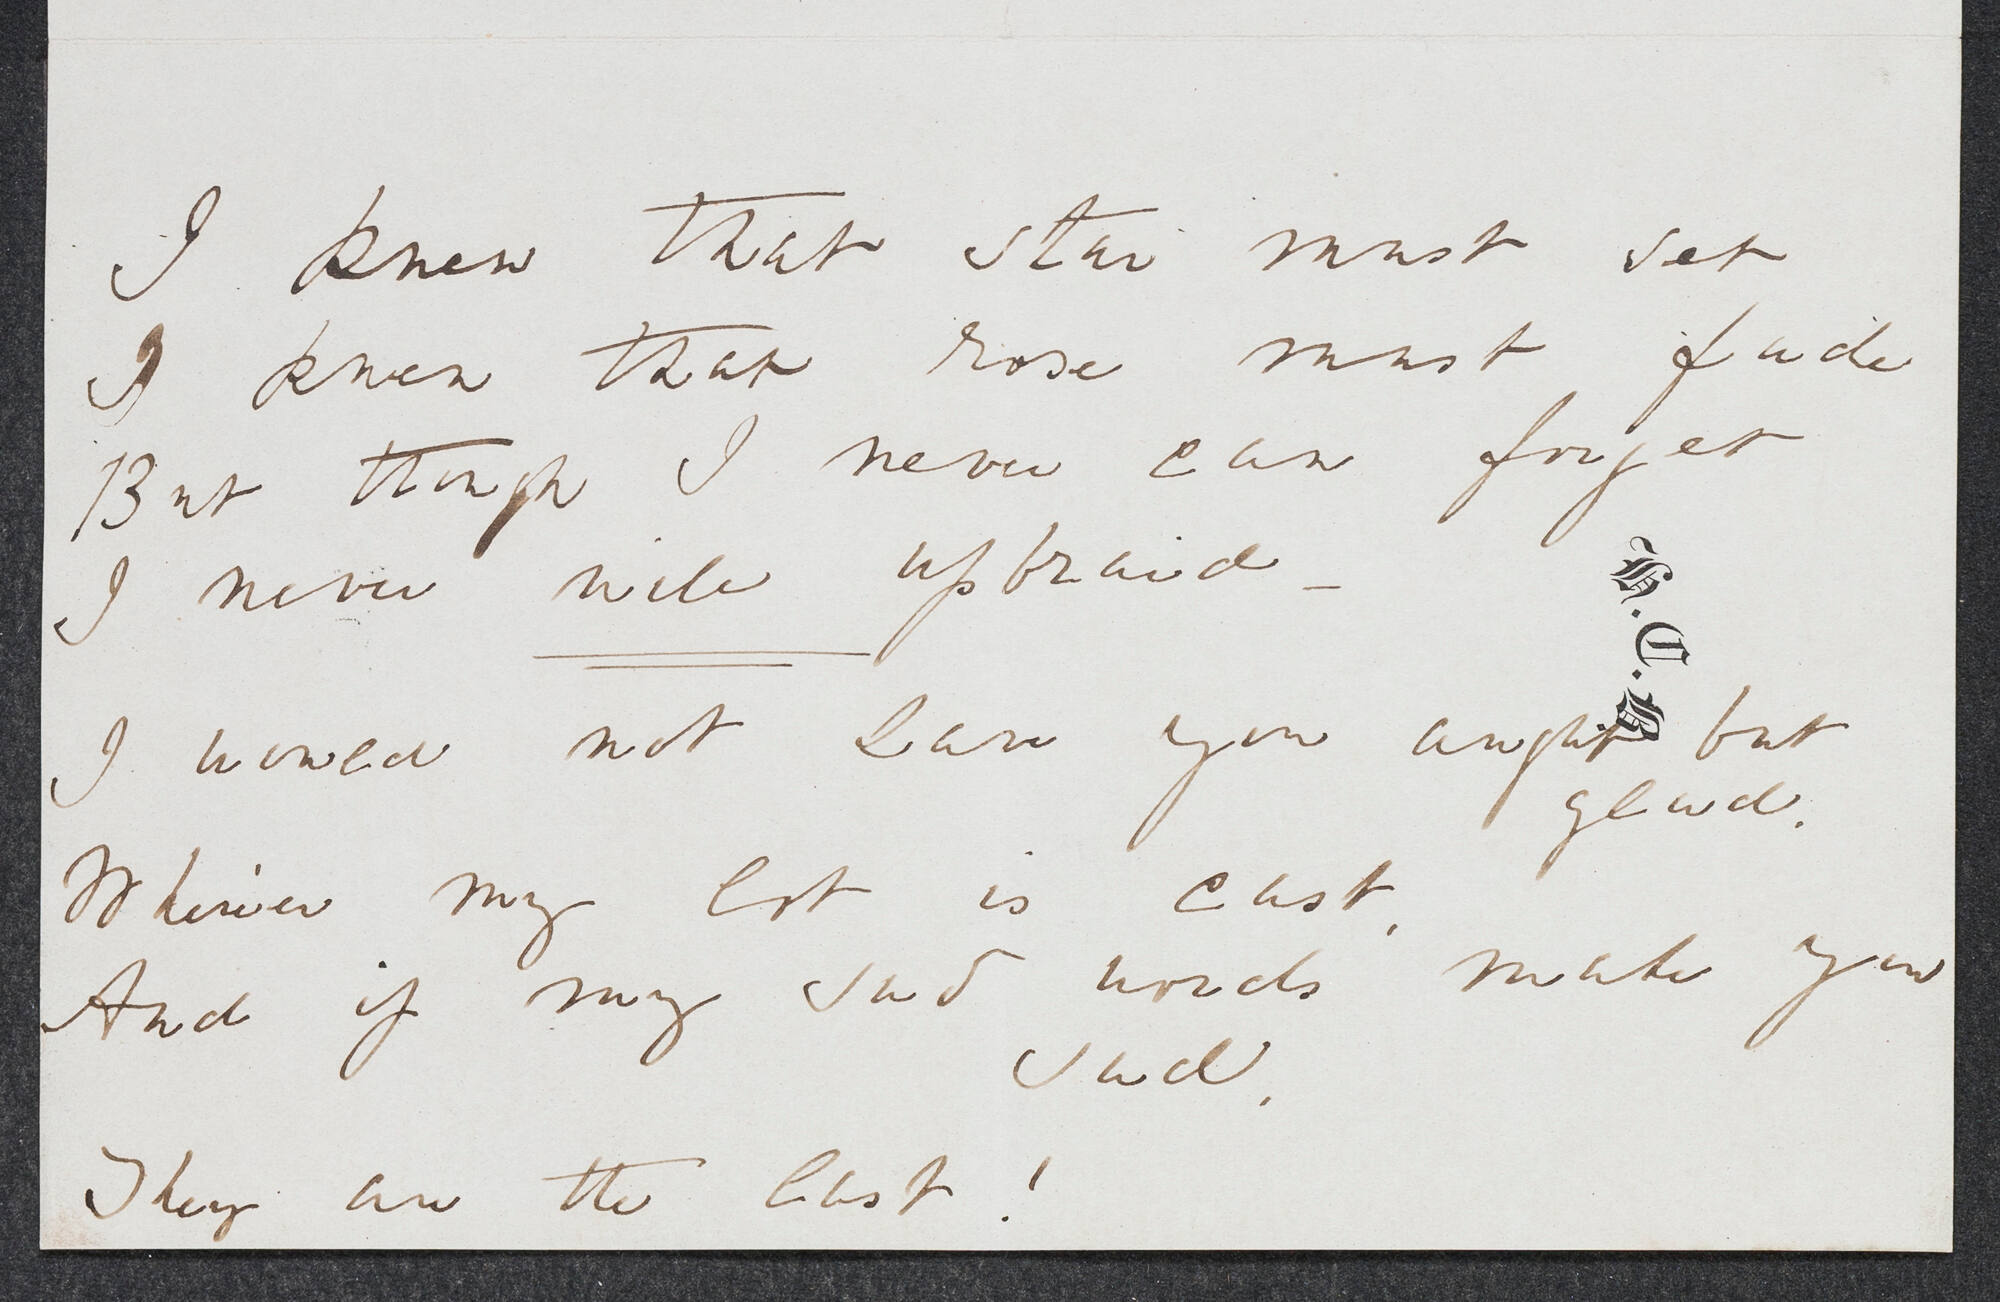 I knew that star must set
I knew that rose must fade
But though I never can forget
I never will upbraid –
H.C.B.
I would not have you aught but
glad.
Where'er my lot is cast,
And if my sad words make you
sad,
They are the last!